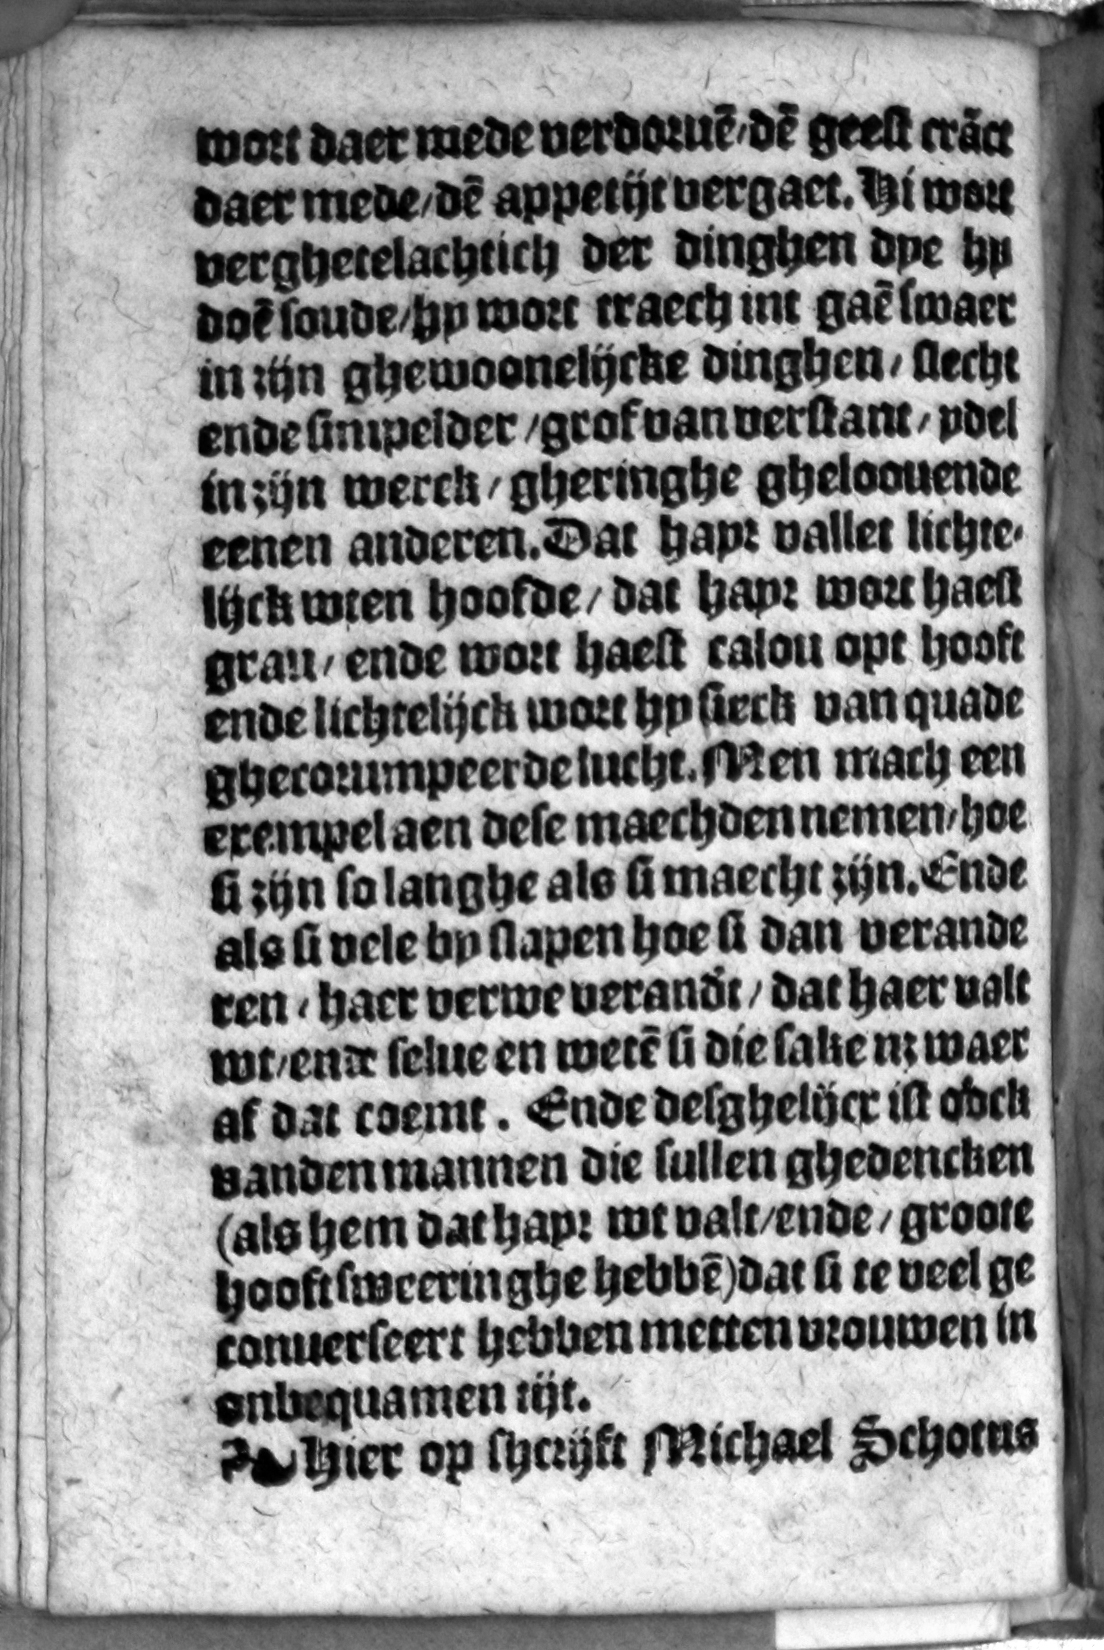 wort daer mede verdoruē/dē geest crāct
daer mede/dē appetijt vergaet. Hi wort
verghetelachtich der dinghen dye hy
doē soude/hy wort traech int gaē swaer
in zijn ghewoonelijcke dinghen/ slecht
ende simpelder/grof van verstant/ ydel
in zijn werck/ gheringhe gheloouende
eenen anderen. Dat hayr vallet lichte-
lijck wten hoofde/ dat hayr wort haest
grau/ ende wort haest calou opt hooft
ende lichtelijck wort hy sieck van quade
ghecorumpeerde lucht. Men mach een
exempel aen dese maechden nemen/hoe
si zijn so langhe als si maecht zijn. Ende
als si vele by slapen hoe si dan verande
ren/ haer verwe verandt/ dat haer valt
wt/ende selue en wetē si die sake nz waer
af dat coemt. Ende desghelijcx ist oock
vanden mannen die sullen ghedencken
(als hem dat hayr wt valt/ende/ groote
hooftsweeringhe hebbē) dat si te veel ge
conuerseert hebben metten vrouwen in
onbequamen tijt.
Hier op shcrijft Michael Schotus